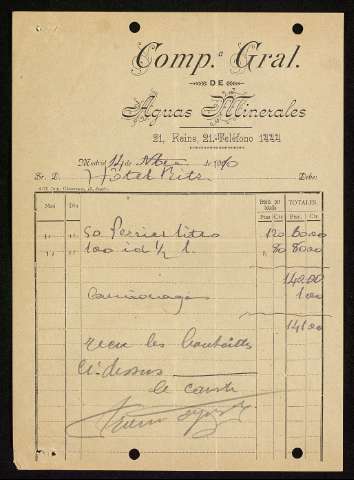 Comp.ª Gral.
DE
Aguas Minerales
21, Reina, 21.-Teléfono 1444
Madrid 14 de Nbre de 1910
Sr. D. Hôtel Ritz Debe:
Mes Día TOTALES
Ptas Cts Ptas Cts
50 Perrier litros 1 20 60 00
100 id ½ l. 80 80 00
142 00
1 00
141 00
reçu les bouteilles
ci-dessus
le comte